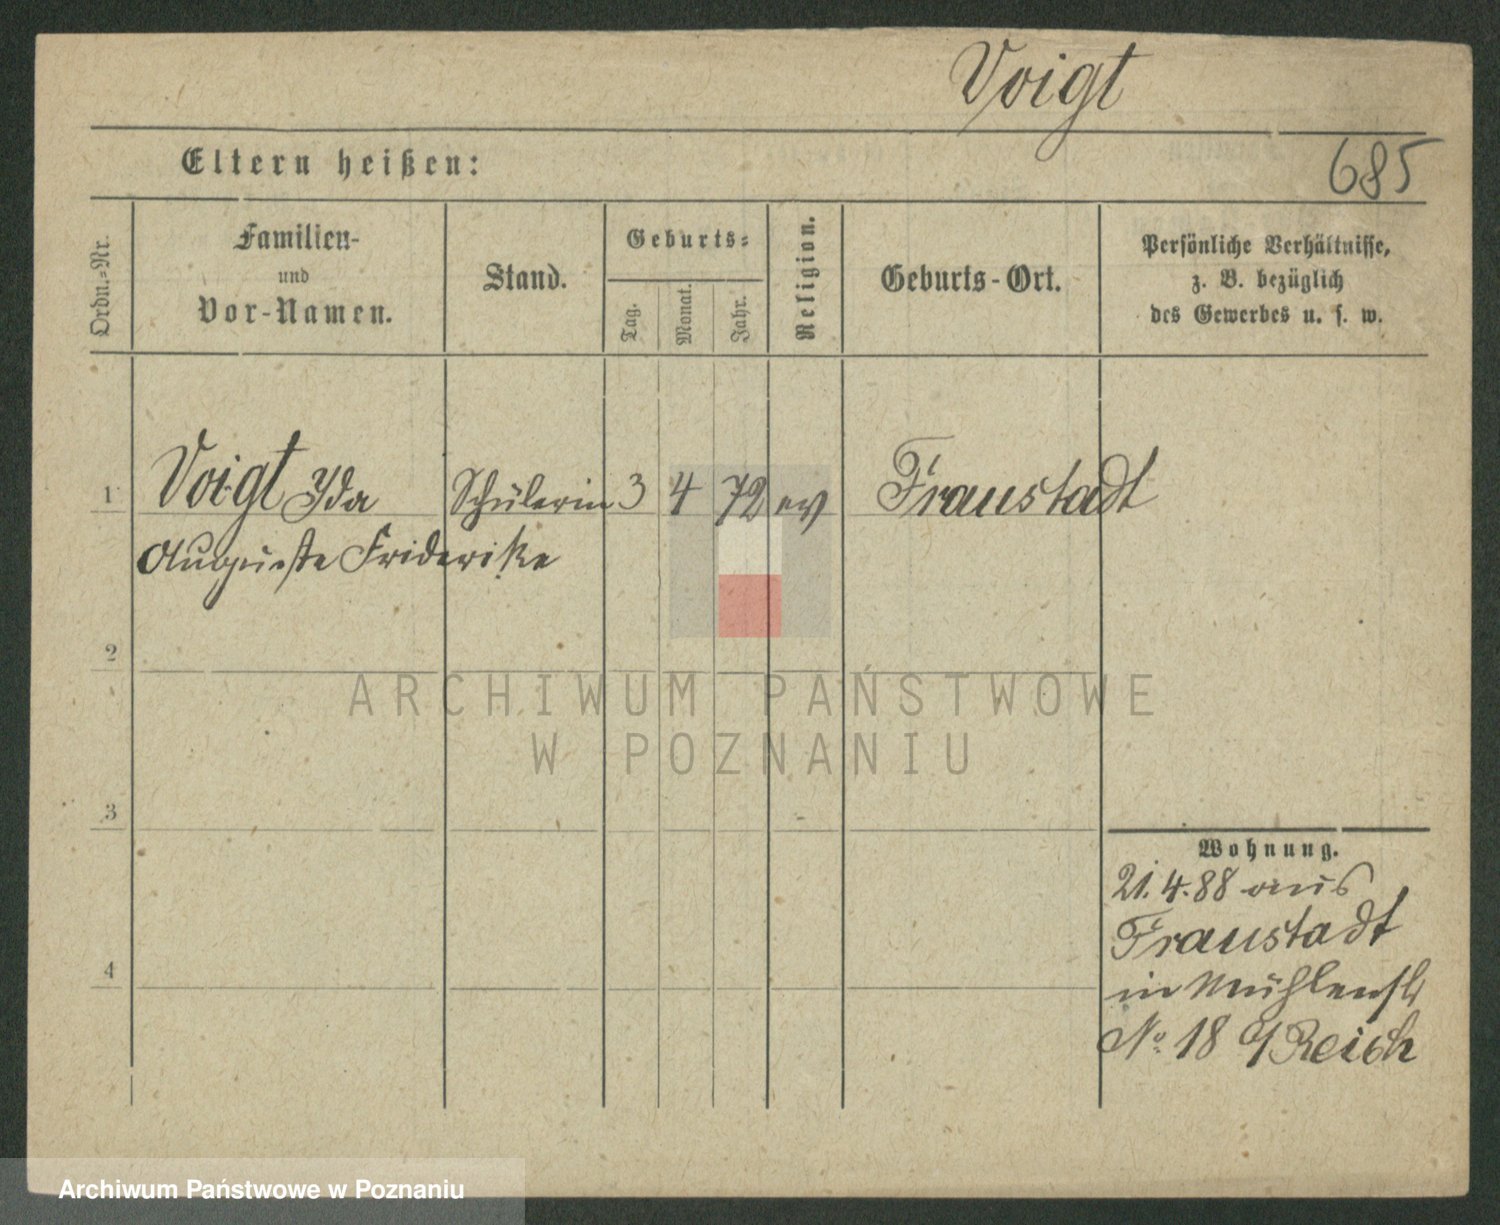 Voigt
685
Eltern heißen:
Ordn.=Nr.
Familien-
und
Vor-Namen.
Stand.
Geburts=
Tag.
Monat.
Jahr.
Religion.
Geburts-Ort.
Persönliche Verhältnisse,
z. B. bezüglich
des Gewerbes u. s. w.
1 Voigt Ida Schülerin 3 4 72 ev Fraustadt
Auguste Friderike
2
3
4
Wohnung.
21.4.88 aus
Fraustadt
in Mühlenstr
No 18 b/Reich
ARCHIWUM PAŃSTWOWE
W POZNANIU
Archiwum Państwowe w Poznaniu